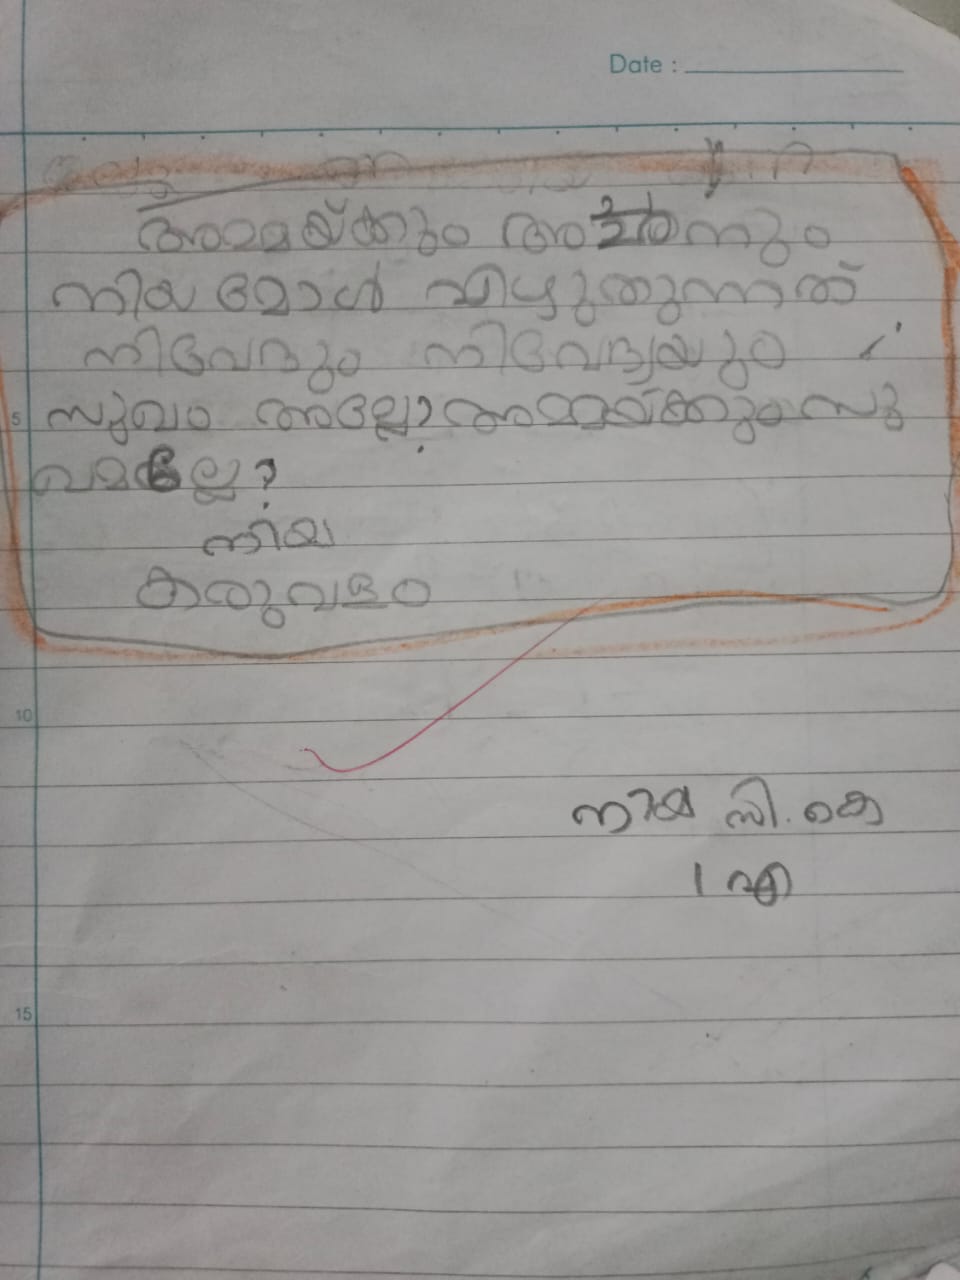 Date :
അമ്മയ്ക്കും അച്ഛനും
നിയ മോൾ എഴുതുന്നത്
നിവേദും നിവേദ്യയും
5 സുഖം അല്ലേ? അമ്മയ്ക്കും സു
ഖമല്ലേ?
നിയ
കരുവളം
10
നിയ സി. കെ
1 എ
15